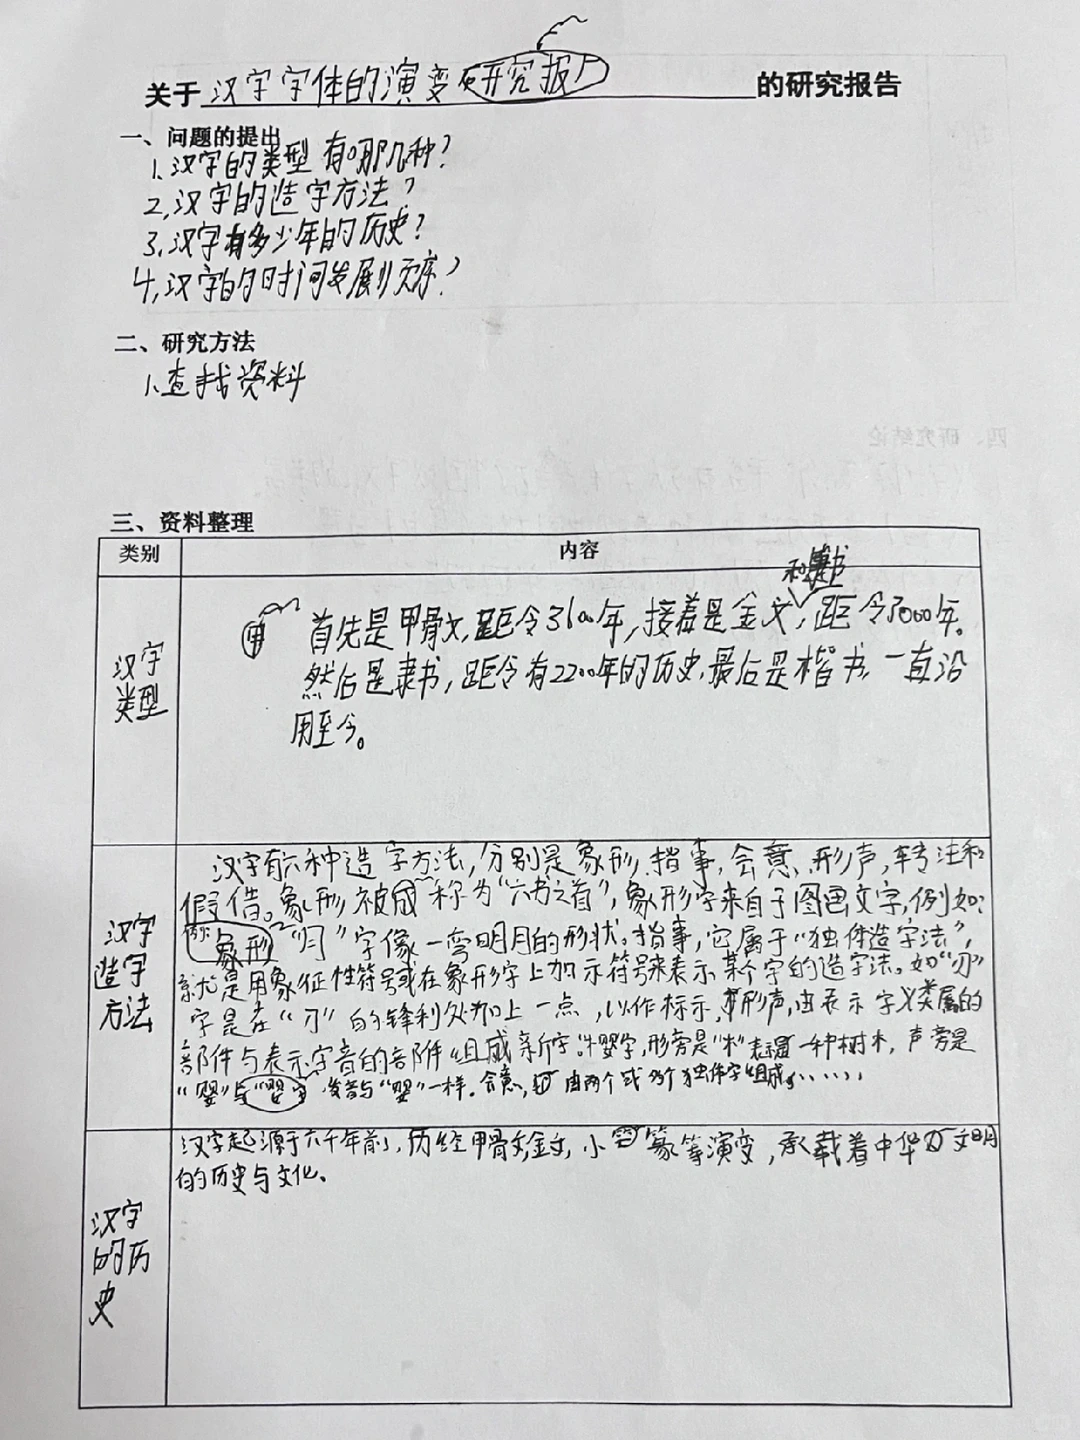 关于汉字字体的演变研究报的研究报告
一、问题的提出
1、汉字的类型有哪几种?
2、汉字的造字方法?
3、汉字有多少年的历史?
4、汉字的时间发展顺序?
二、研究方法
1、查找资料
三、资料整理
类别
内容
汉字
类型
和隶书
首先是甲骨文,距今3600年,接着是金文,距今3000年。
然后是隶书,距今有2200年的历史.最后是楷书,一直沿
用至今。
汉字
造字
方法
汉字有六种造字方法,分别是象形.指事,会意、形声,转注和
假借。象形被称为“六书之首”,象形字来自于图画文字,例如:
象形“月”字像一弯明月的形状。指事,它属于“独体造字法”,
就是用象征性符号或在象形字上加示符号来表示某个字的造字法。如“刃”
字是在“刀”的锋利处加上一点,以作标示,形声,由表示字义类属的
部件与表示字音的部件组成新字。樱字,形旁是“木”表示一种树木,声旁是
“婴”与“婴”发音与“婴”一样.会意,由两个或多个独体字组成......
汉字
的历
史
汉字起源于六千年前,历经甲骨文,金文,小篆等演变,承载着中华文明
的历史与文化。